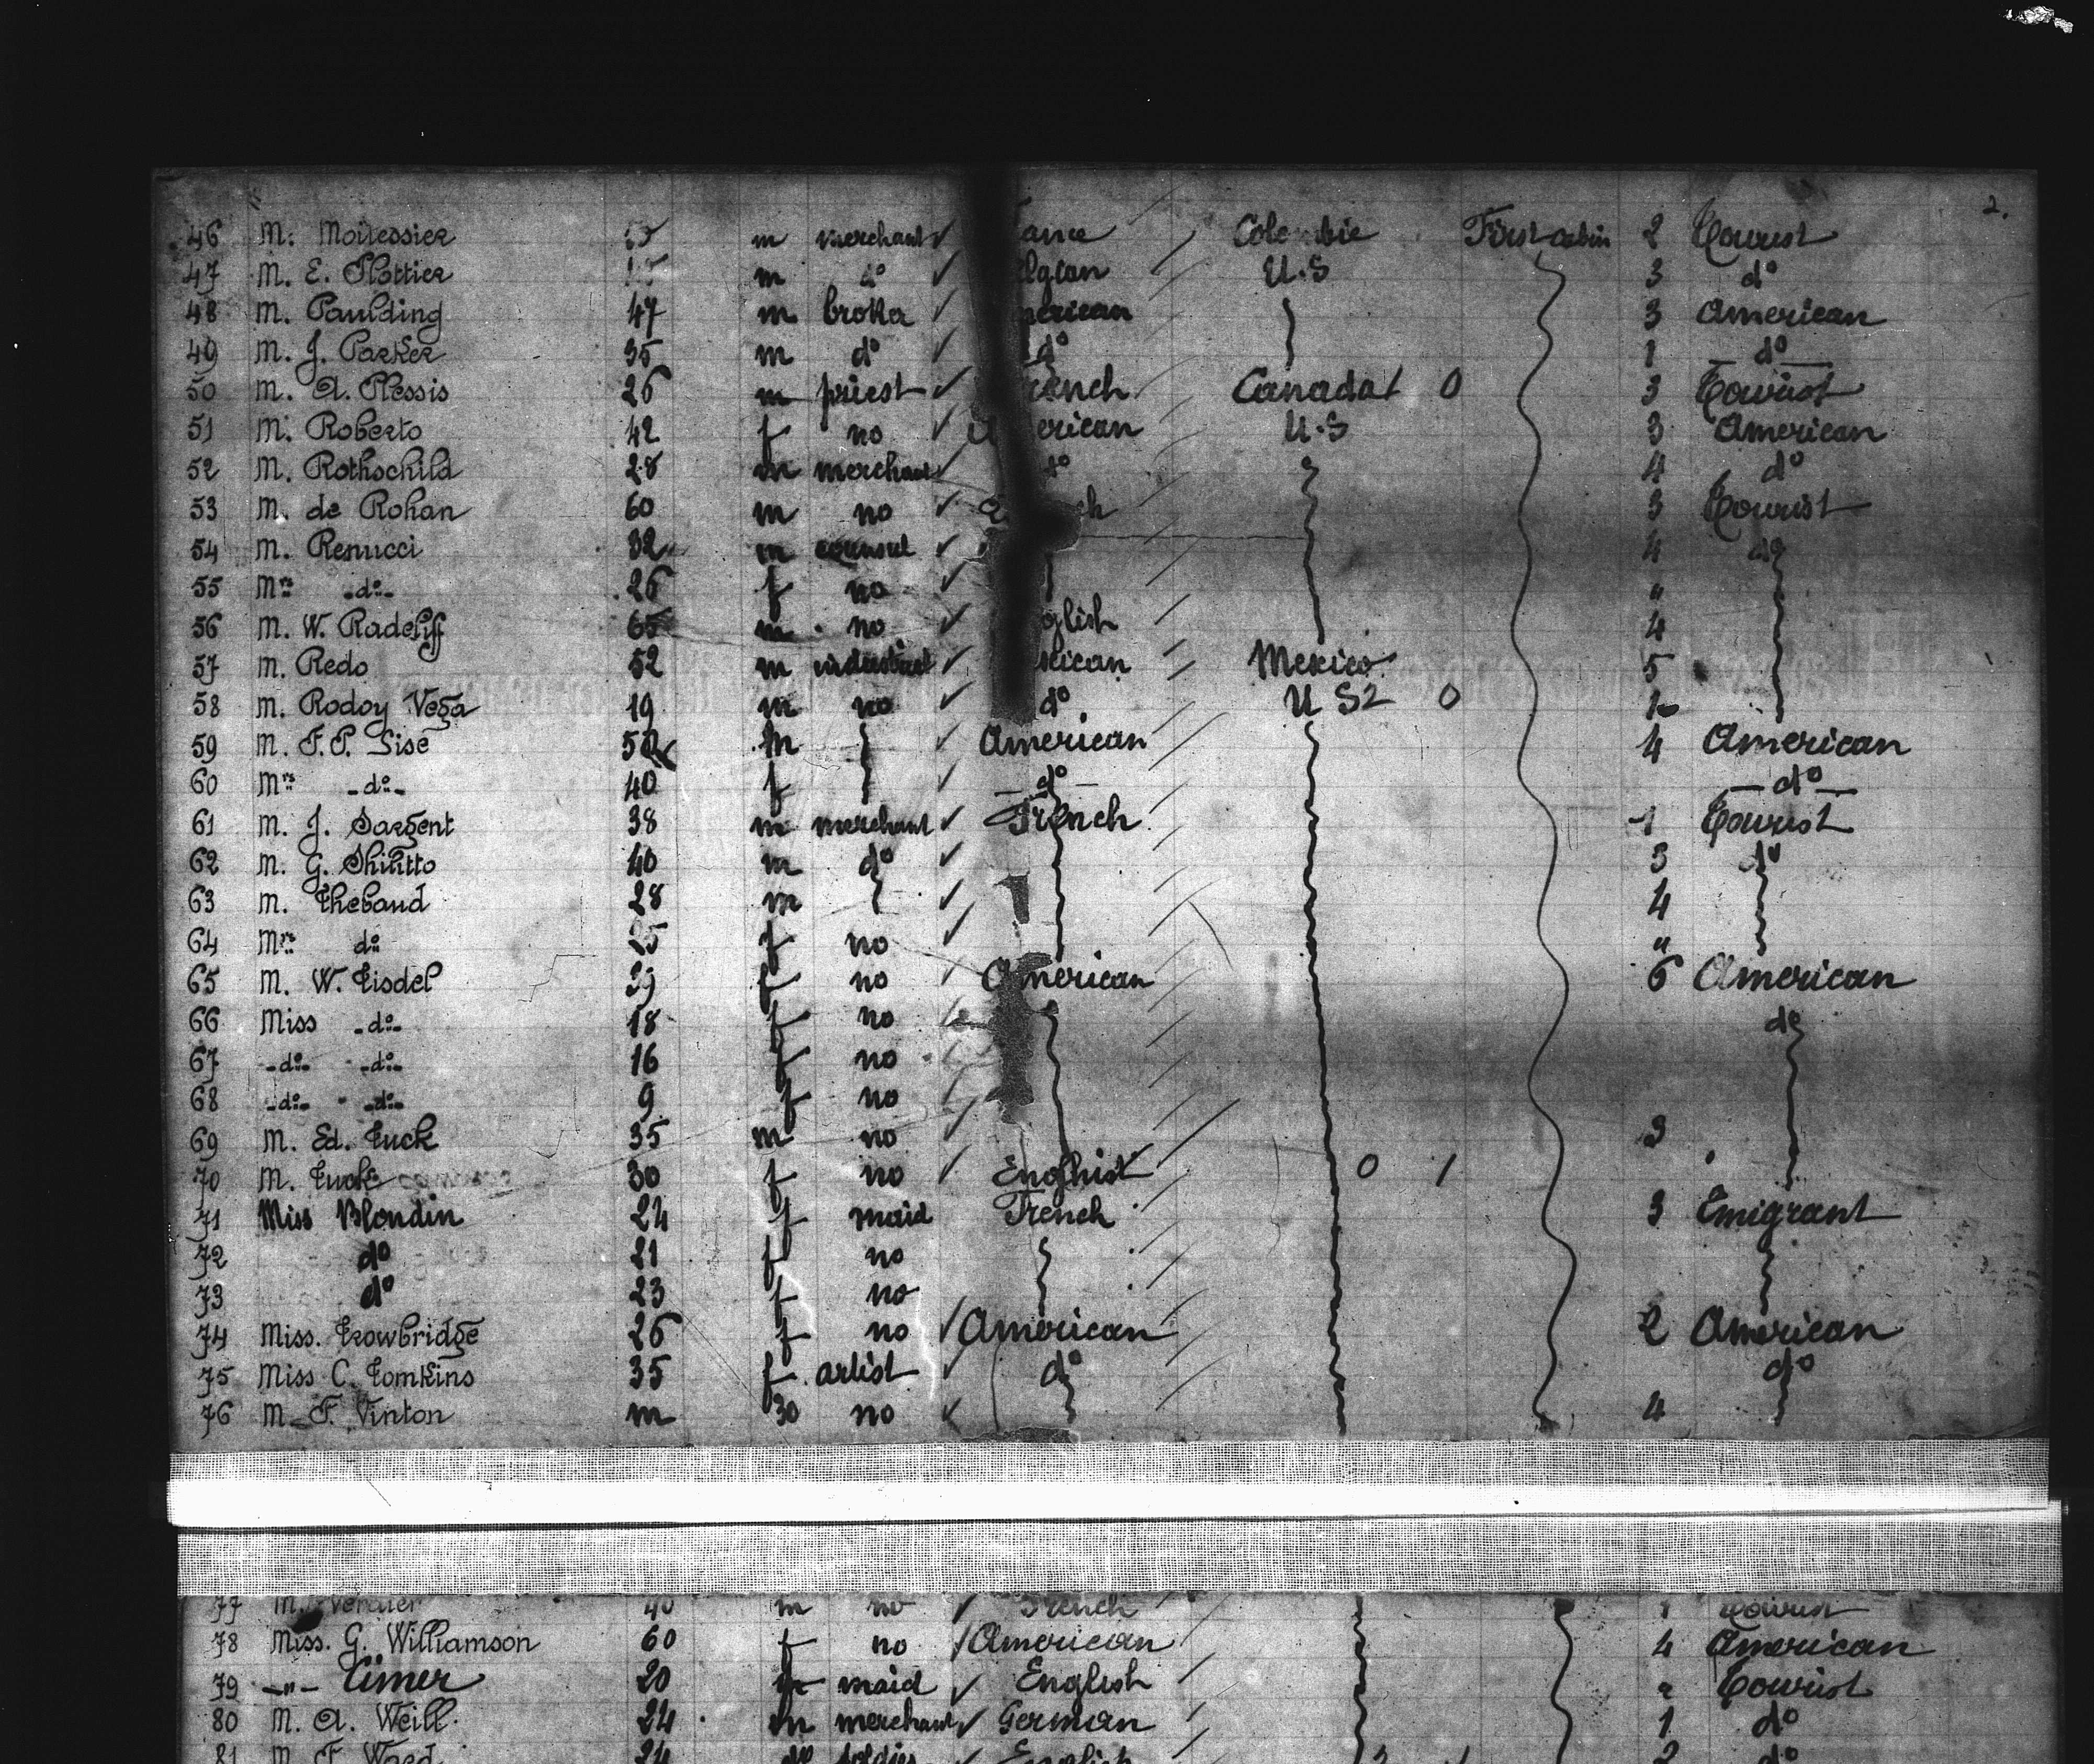 2.
46 M. Moitessier m merchant ance Colo bie First cabin 2 Tourist
47 M. E. Plottier m do elgian U.S 3 do
48 M. Paulding 47 m broker merican 3 American
49 M. J. Parker 35 m do do 1 do
50 M. A. Plessis 26 m priest rench Canada 0 3 Tourist
51 M. Roberto 42 f no A erican U.S 3 American
52 M. Rothschild 28 m merchant do 4 do
53 M. de Rohan 60 m no ch 3 Tourist
54 M. Renucci 32 m consul 4 do
55 Mrs -do- 26 f no "
56 M. W. Radcliff 65 m no glish 4
57 M. Redo 52 m industriel xican Mexico 5
58 M. Rodoy Vega 19 m no do U S2 0 1
59 M. F.P. Sise 52 m American 4 American
60 Mrs -do- 40 f -do- -do-
61 M. J. Sargent 38 m merchant French 1 Tourist
62 M. G. Shilitto 40 m do 3 do
63 M. Thebaud 28 m 4
64 Mrs do 25 f no "
65 M. W. Tisdel 39 f no American 6 American
66 Miss -do- 18 f no do
67 -do- -do- 16 f no
68 -do- -do- 9 f no
69 M. Ed. Tuck 35 m no 3
70 M. Tuck 30 f no English 0 1
71 Miss Blondin 24 f maid French 3 Emigrant
72 do 21 f no
73 do 23 f no
74 Miss. Trowbridge 26 f no American 2 American
75 Miss C. Tomkins 35 f artist do do
76 M. F. Vinton m 30 no 4
77 M. Verdier 40 m no French 1 Tourist
78 Miss. G. Williamson 60 f no American 4 American
79 -"- Aimer 20 maid English Tourist
80 M. A. Weill 24 m merchant German 1 do
81 M. F. Ward 34 do soldier English 2 do